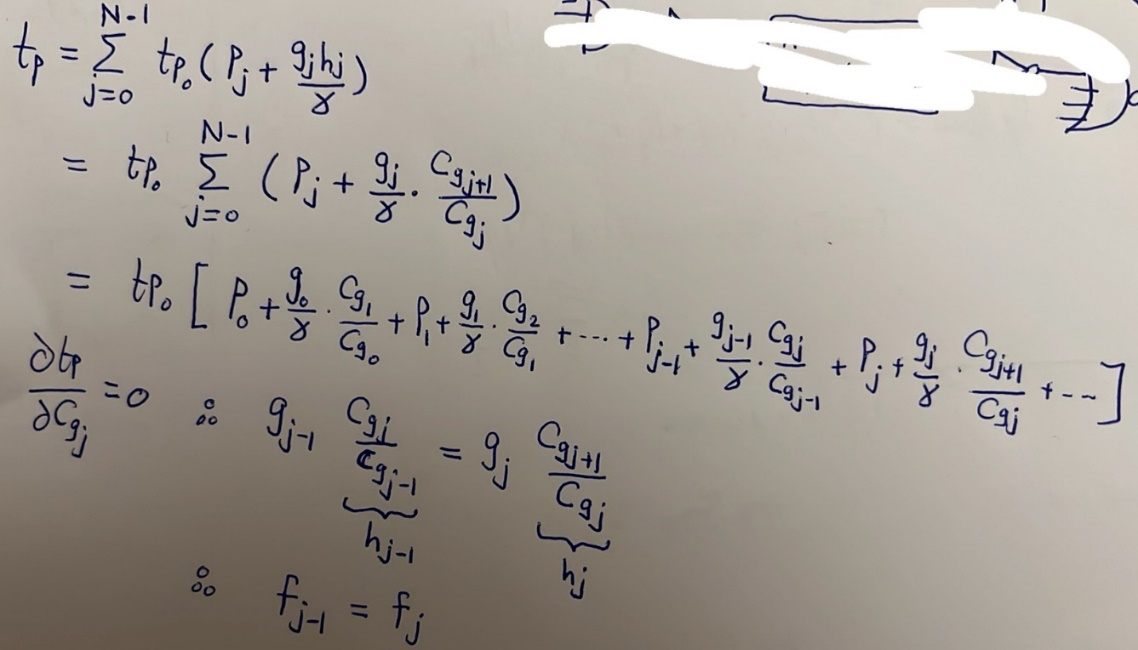 t_p = \sum_{j=0}^{N-1} t_{p_0} ( P_j + \frac{g_j h_j}{\gamma} )
= t_{p_0} \sum_{j=0}^{N-1} ( P_j + \frac{g_j}{\gamma} \cdot \frac{C_{g_{j+1}}}{C_{g_j}} )
= t_{p_0} [ P_0 + \frac{g_0}{\gamma} \cdot \frac{C_{g_1}}{C_{g_0}} + P_1 + \frac{g_1}{\gamma} \cdot \frac{C_{g_2}}{C_{g_1}} + \cdots + P_{j-1} + \frac{g_{j-1}}{\gamma} \cdot \frac{C_{g_j}}{C_{g_{j-1}}} + P_j + \frac{g_j}{\gamma} \cdot \frac{C_{g_{j+1}}}{C_{g_j}} + \cdots ]
\frac{\partial t_p}{\partial C_{g_j}} = 0 ∴ g_{j-1} \underbrace{\frac{C_{g_j}}{C_{g_{j-1}}}}_{h_{j-1}} = g_j \underbrace{\frac{C_{g_{j+1}}}{C_{g_j}}}_{h_j}
∴ f_{j-1} = f_j